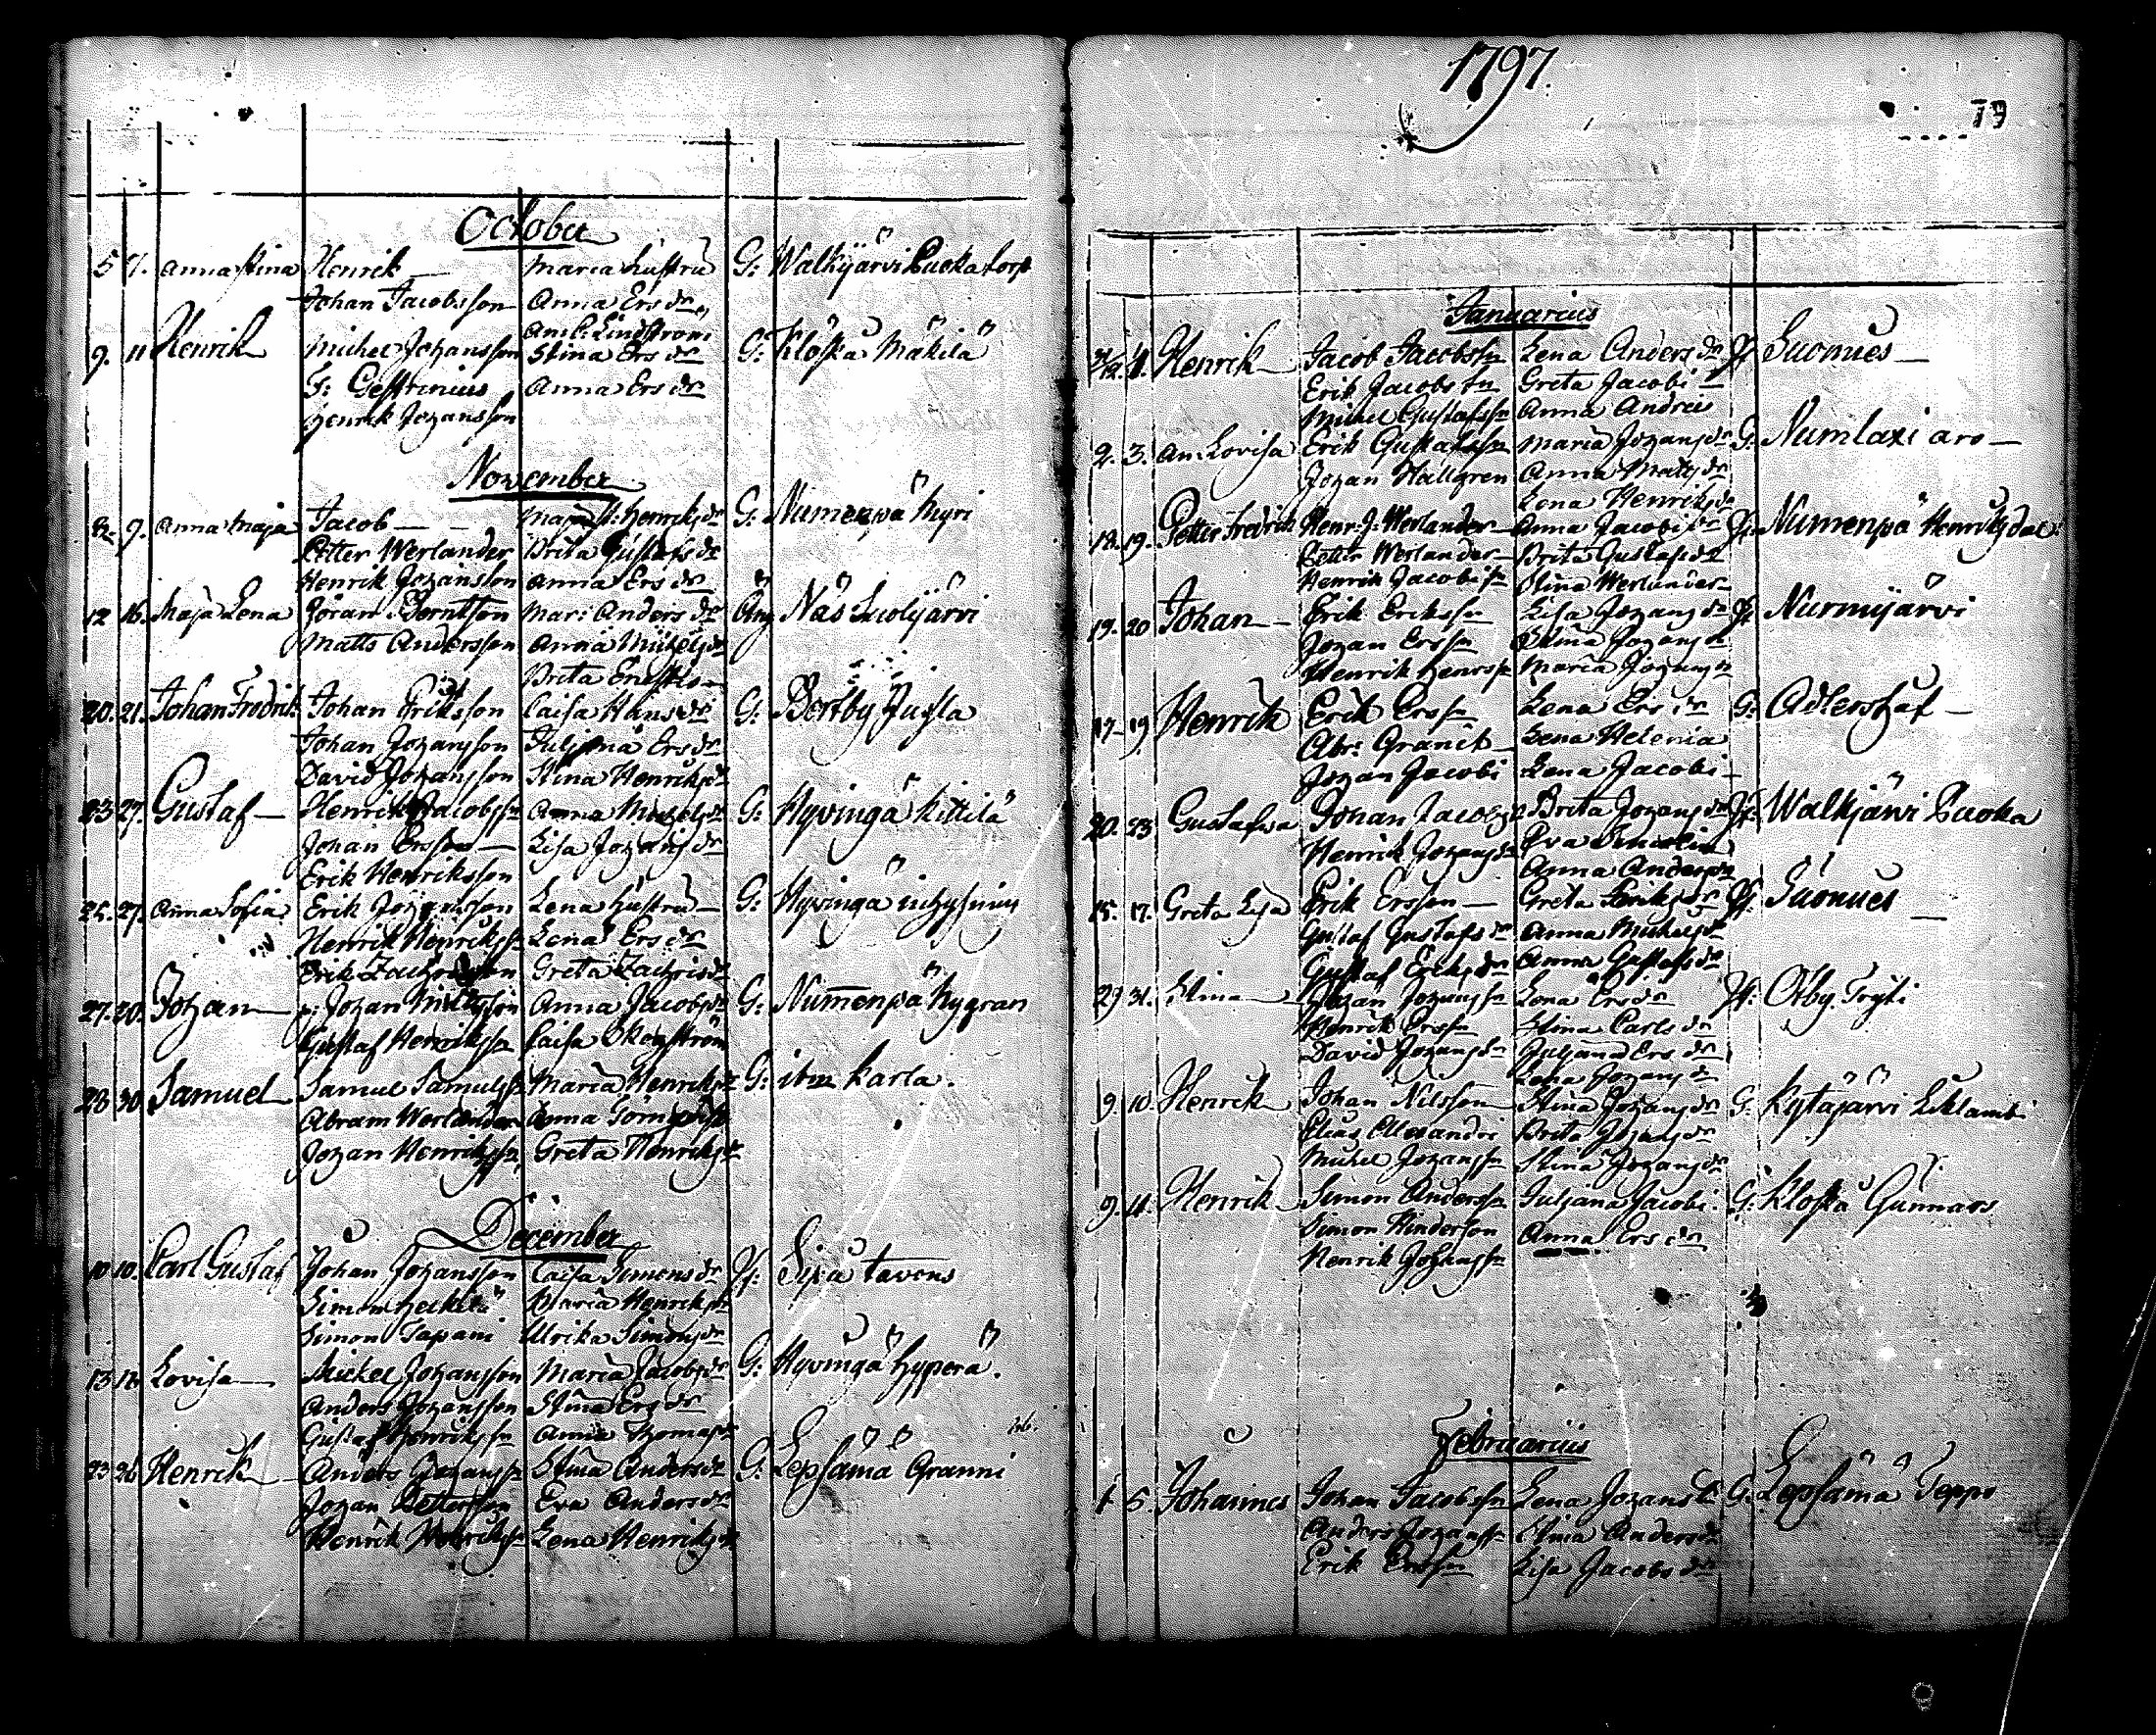 October
5 7. Anna Stina Henrik — Maria hustru G: Walkijärvi Puoka torp
Johan Jacobsson Anna Ersdr
An: C: Lindström
9. 11 Henrik Michel Johansson Stina Ersdr G: Klöfskå Mäkilä
F: Gestrinius Anna Ersdr
Henrik Johansson
November
8. 9. Anna Maja Jacob — Maja St: Henriksdr G: Numenpä Myri
Petter Werlander Brita Gustafsdr
Henrik Johansson Anna Ersdr
12 16. Maja Lena Göran Berntson Mar: Andersdr Näs
Matts Andersson Anna Michelsdr
Brita
20. 21. Johan Fredrik Johan Eriksson Caisa Hansdr G: Bertby Jusla
Johan Johansson Juliana Ersdr
David Johansson Stina Henriksdr
23 27. Gustaf — Henrik Jacobssn Anna Michelsdr G: Hyvingä Kittilä
Johan Ersson — Lisa Johansdr
Erik Henriksson
25. 27. Anna Sofia Erik Johansson Lena hustru — G: Hyvingä
Henrik Henrikssn Lena Ersdr
Erik Greta Zachrisdr
27. 20. Johan Johan Anna Jacobsdr G: Numenpä Nygran
Gustaf Henrikssn Caisa Skogström
28 30. Samuel Samuel Samulssn Maria Henriksdr G: item Karla.
Abram Werlander Anna
Johan Henrikssn Greta Henriksdr
December
10 10. Carl Gustaf Johan Johansson Caisa Simonsdr Tavons
Simon Heikilä Maria Henriksdr
Simon Tapani Ulrika Simonsdr
13 18 Lovisa — Mickel Johansson Maria Jacobsdr G: Hyvingä Hyperä.
Anders Johansson Stina Ersdr
Gustaf Henrikssn Anna Thomasdr
23 26 Henrik Anders Johanssn Stina Andersdr G: Lepsämä Granni
Johan Pettersson Eva Andersdr
Henrik Henrikssn Lena Henriksdr
1797.
79
Januarius
31/12. 1. Henrik Jacob Jacobssn Lena Andersdr Suomies —
Erik Jacobssn Greta Jacobi
Michel Gustafssn Anna Andrei
2. 3. An: Lovisa Erik Gustafssn Maria Johansdr G: Numlaxi aro —
Johan Hallgren Anna Mattsdr
Lena Henriksdr
18. 19. Petter Fredrik Henr: J: Werlander Anna Jacobidr Numenpä Henriksdal
Petter Werlander Brita Gustafsdr
Henrik Jacobissn Stina Werlander
19. 20 Johan — Erik Erikssn Lisa Johansdr Nurmijärvi
Johan Erssn Stina Johansdr
Henrik Henrssn Maria Johansdr
17 19. Henrik Erik Erssn Lena Ersdr G: Adlershaf —
Abr: Granit Lena Helenia
Johan Jacobi Lena Jacobi
20. 23 Gustafwa Johan Jacobssn Brita Johansdr Walkjärvi Puoka
Henrik Eva
Anna Andersdr
15. 17. Greta Lisa Erik Ersson — Greta Eriksdr Suomies —
Gustaf Anna Michelsdr
Gustaf Anna Gustafsdr
29 31. Stina — Johan Johanssn Lena Ersdr Olby.
Henrik Erssn Stina Carlsdr
David Juliana Ersdr
Lena Johansdr
9. 10. Henrik Johan Nilsson Stina Johansdr G: Kytäjärvi Liklambi
Elias Alexandri Brita Johansdr
Michel Johanssn Stina Johansdr
9. 11. Henrik Simon Anderssn Juliana Jacobi. G: Klofskå Gunnars
Simon Hinderson Anna Ersdr
Henrik Johanssn
Februarius
1 5. Johannes Johan Jacobssn Lena Johansdr G: Lepsämä Teppo
Anders Johanssn Stina Andersdr
Erik Erssn Lisa Jacobsdr